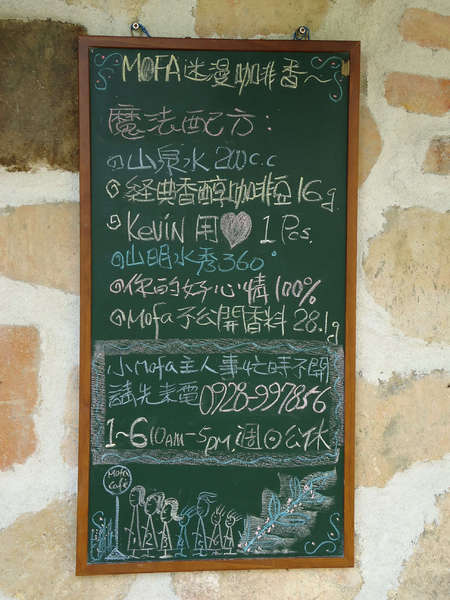 MOFA迷漫咖啡香~
魔法配方:
山泉水 200c.c
經典香醇咖啡豆 16g
Kevin 用♥ 1 Pcs.
山明水秀360°
你的好心情 100%
Mofa不公開香料 28.1g
小Mofa主人事忙時不開
請先來電 0928-997856
1~6 10am-5pm.週日公休
Mofa
Café